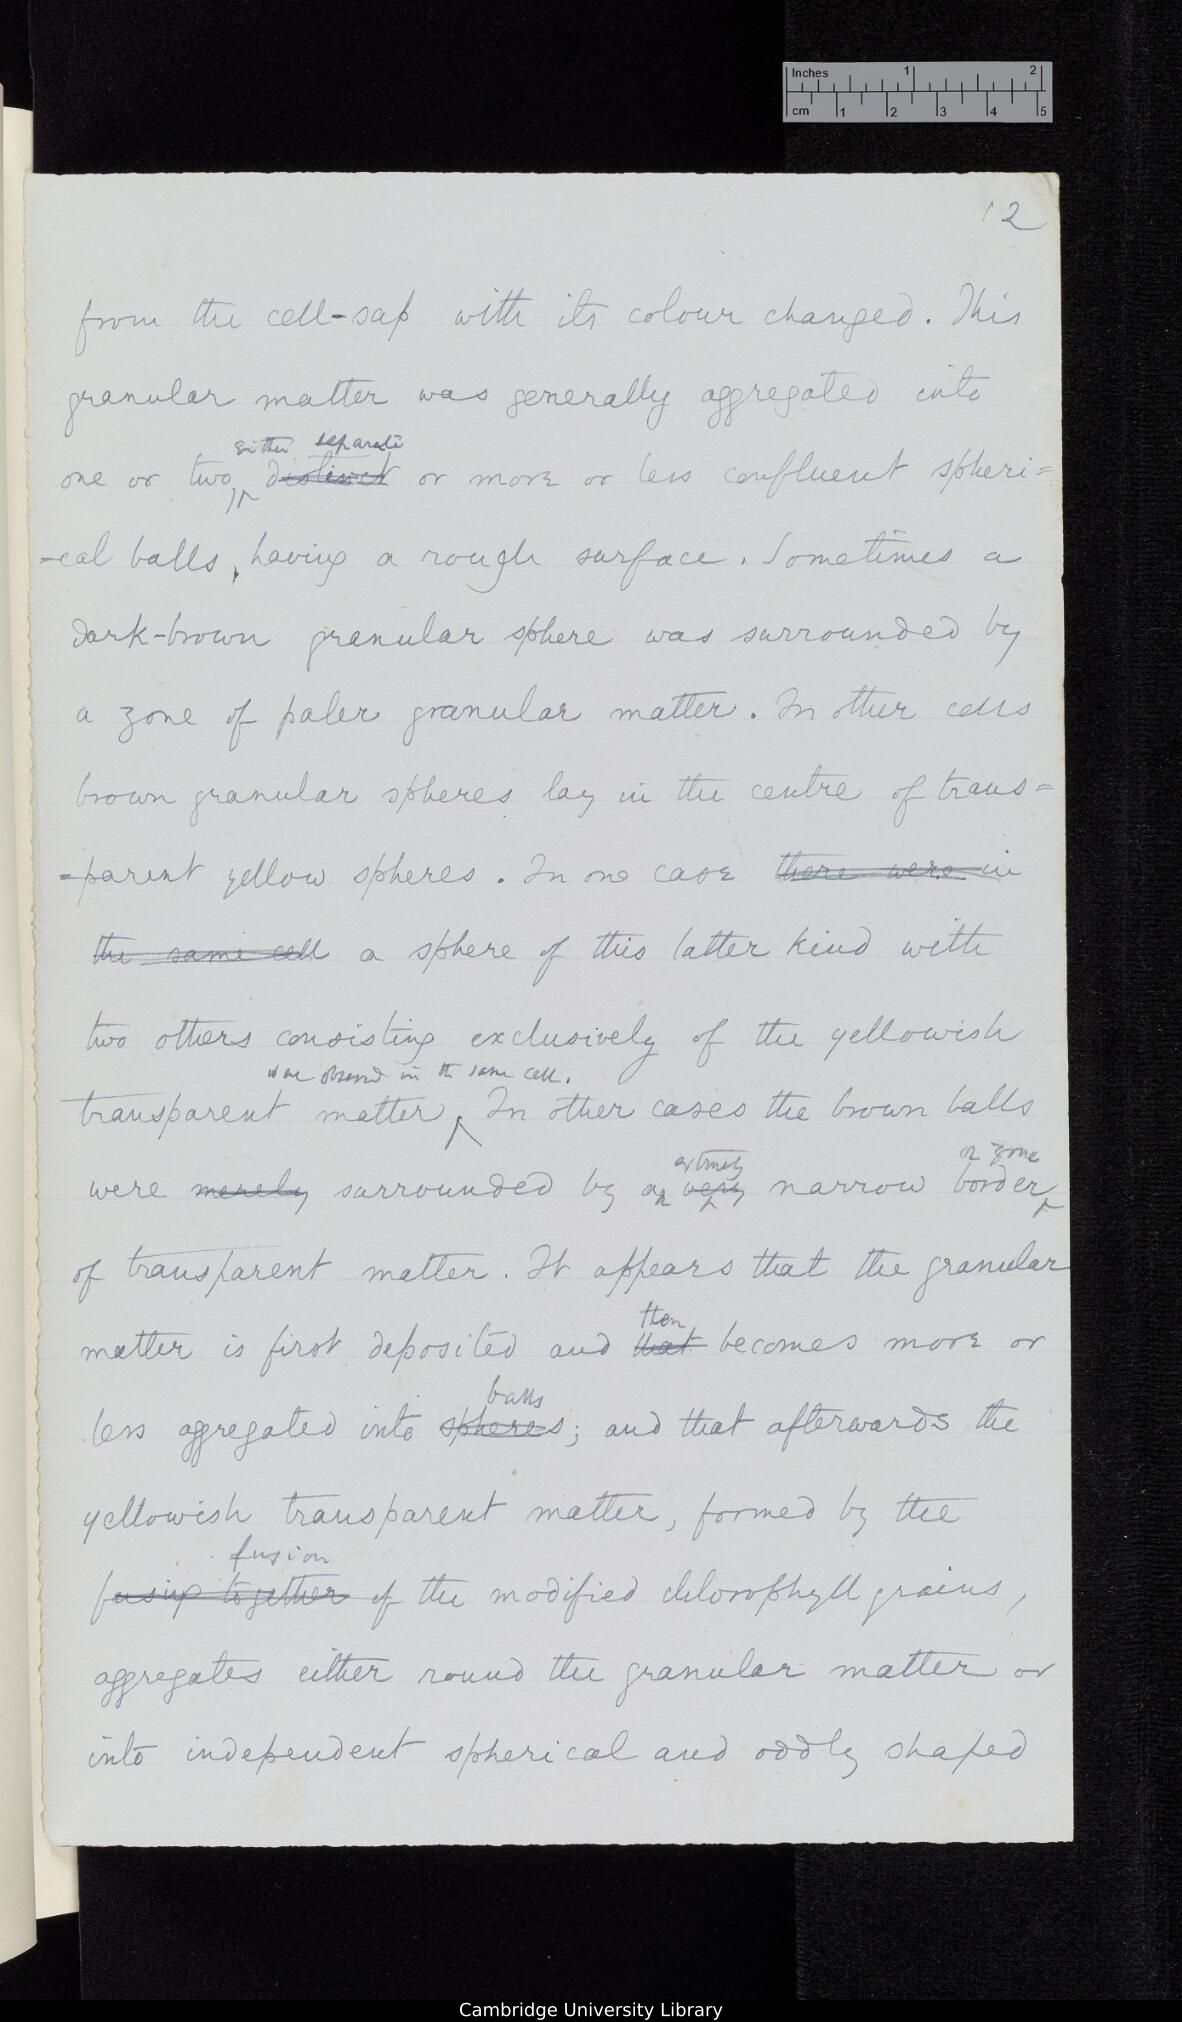 Inches 1 2
cm 1 2 3 4 5
12
from the cell-sap with its colour changed. This
granular matter was generally aggregated into
either separate
one or two, distinct or more or less confluent spheri=
-cal balls, having a rough surface. Sometimes a
dark-brown granular sphere was surrounded by
a zone of paler granular matter. In other cells
brown granular spheres lay in the centre of trans=
=parent yellow spheres. In one case there were in
the same cell a sphere of this latter kind with
two others consisting exclusively of the yellowish
were observed in the same cell.
transparent matter. In other cases the brown balls
extremely or zone
were merely surrounded by an very narrow border
of transparent matter. It appears that the granular
then
matter is first deposited and that becomes more or
balls
less aggregated into spheres; and that afterwards the
yellowish transparent matter, formed by the
fusion
fusing together of the modified chlorophyll grains,
aggregates either round the granular matter or
into independent spherical and oddly shaped
Cambridge University Library